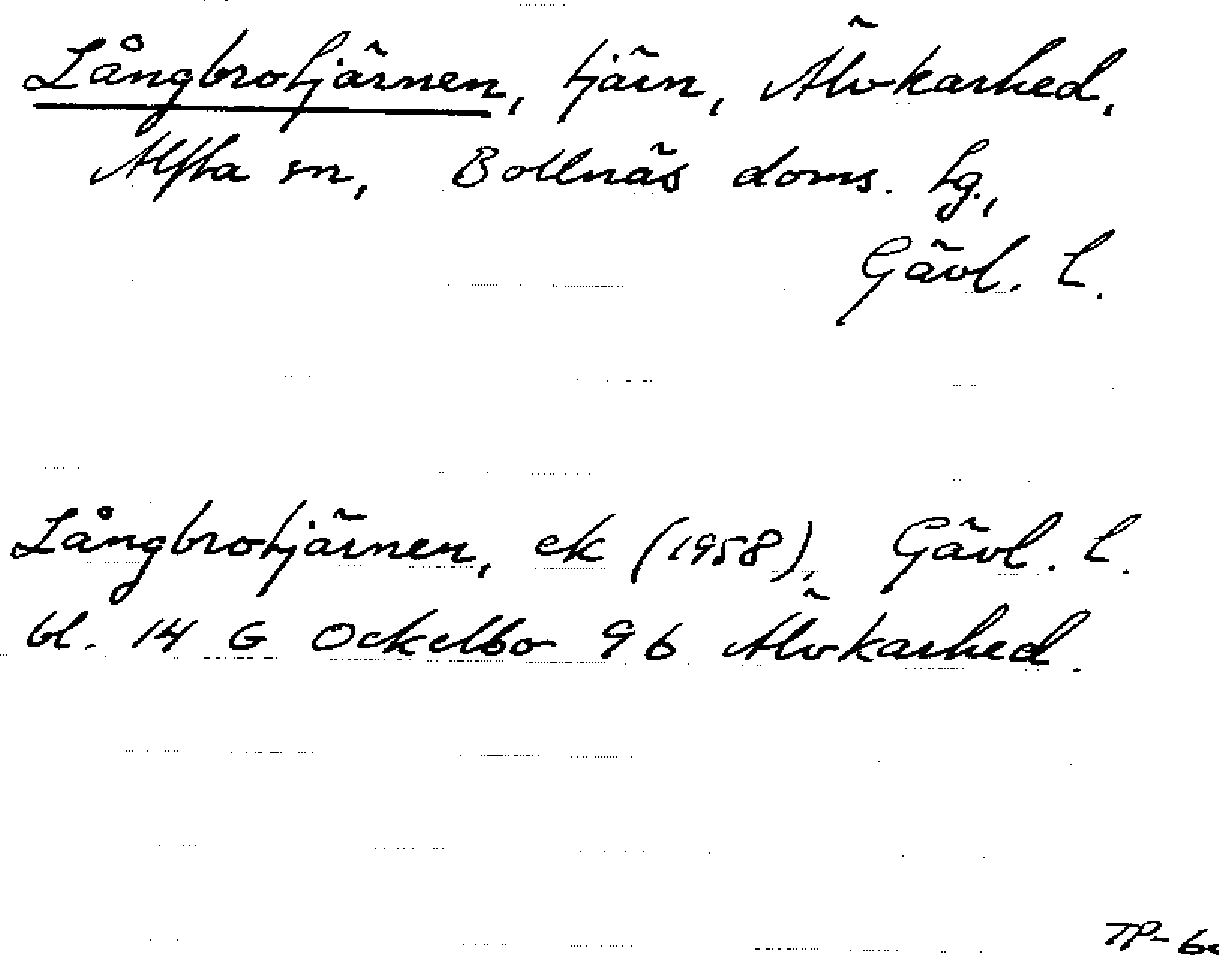 Långbrotjärnen, tjärn, Älvkarhed,
Alfta sn, Bollnäs doms. hg.,
Gävl. l.
Långbrotjärnen, ek (1958), Gävl. l.
bl. 14 G Ockelbo 9 b Älvkarhed.